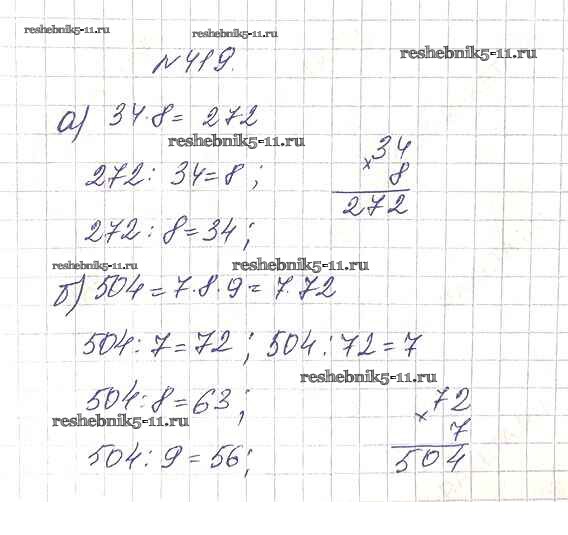 reshebnik5-11.ru
reshebnik5-11.ru
reshebnik5-11.ru
№419.
а) 34·8= 272
reshebnik5-11.ru
34
× 8
272
272: 34=8;
272: 8=34;
reshebnik5-11.ru
reshebnik5-11.ru
б) 504=7·8·9=7·72
504:7=72; 504:72=7
reshebnik5-11.ru
504:8=63;
reshebnik5-11.ru
504:9=56;
72
× 7
504